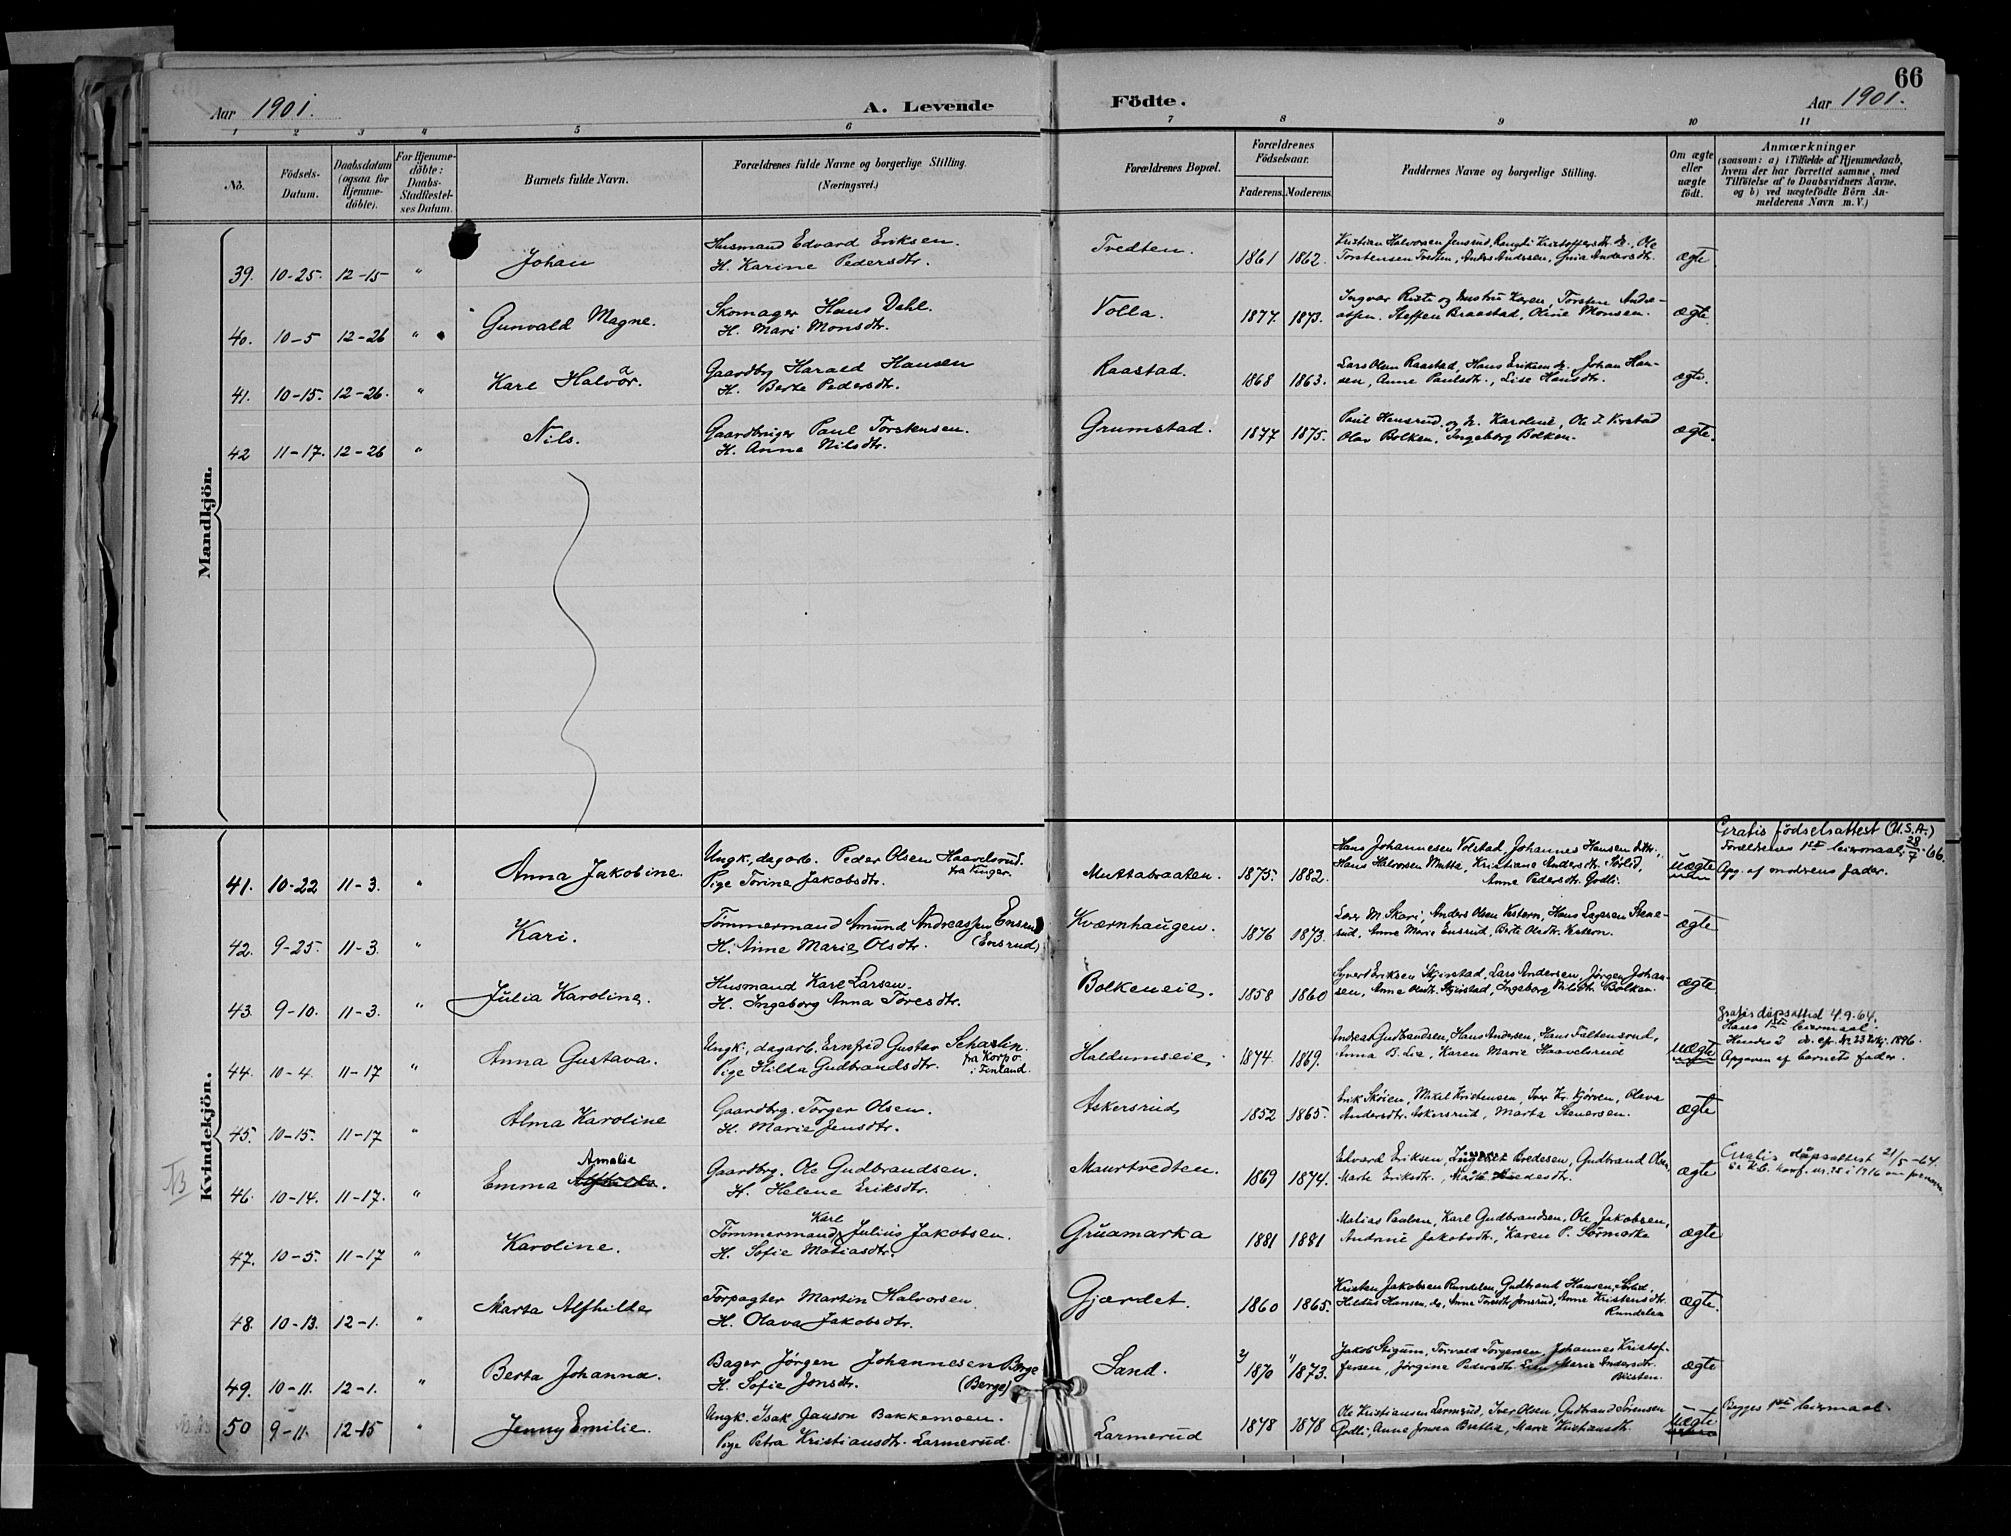 66
Aar 1901. A. Levende Födte. Aar 1901.
1 2 3 4 5 6 7 8 9 10 11
No.
Födsels-
Datum.
Daabsdatum
(ogsaa for
Hjemme-
döbte).
For Hjemme-
döbte:
Daabs-
Stadfæstel-
ses Datum.
Barnets fulde Navn.
Forældrenes fulde Navne og borgerlige Stilling.
(Næringsvei.)
Forældrenes Bopæl.
Forældrenes
Födselsaar.
Faderens. Moderens.
Faddernes Navne og borgerlige Stilling.
Om ægte
eller
uægte
födt.
Anmærkninger
(saasom: a) i Tilfælde af Hjemmedaab,
hvem der har forrettet samme, med
Tilföielse af to Daabsvidners Navne,
og b) ved uægtefödte Börn An-
melderens Navn m. V.)
Mandkjön.
39. 10-25. 12-15 " Johan
Husmand Edvard Eriksen.
H. Karine Pedersdtr.
Tvedten. 1861 1862.
Kristian Halvorsen Jensrud, Rangdi Kristoffersdtr. do., Ole
Torstensen Tvedten, Anders Andersen, Andersdtr.
ægte
40. 10-5 12-26 " Gunvald Magne.
Skomager Hans Dahl.
H. Mari Monsdtr.
Volla. 1877. 1873.
Ingvar og Hustru Karen, Torsten Andre-
assen. Steffen Braastad, Oline Monsen.
ægte.
41. 10-15. 12-26. " Karl Halvor.
a
Gaardbrg Harald Hansen
H. Berte Pedersdtr.
Raastad. 1868 1863.
Lars Olsen Raastad, Hans Eriksen do. Johan Han-
sen, Anne Paulsdtr., Lise Hansdtr.
ægte.
42 11-17. 12-26 " Nils.
Gaardbruger Paul Torstensen.
H. Anne Nilsdtr.
Grumstad. 1847 1875.
Paul Hensrud og H. Karoline, Ole T.
Olav Bolken, Ingeborg Bolken.
ægte.
Kvindekjön.
41. 10-22 11-3. " Anna Jakobine.
Ungk., dagarb. Peder Olsen Haavelsrud.
fra Ringer.
Pige Torine Jakobsdtr.
Muttabraaten. 1875. 1882.
Hans Johannesen Volstad, Johannes Hansen
Hans Halvorsen Mutta, Kristiane Andersdtr. Sørlid,
Anne Pedersdtr. Godli.
uægte
Gratis fødselsattest (U.S.A.)
28/7-66.
Forældrenes 1ste leiermaal.
Opg. af moderens fader.
42. 9-25. 11-3 " Kari.
Tømmermand Amund Andreassen Ensrud
H. Anne Marie Olsdtr. (Ensrud)
Kværnhaugen. 1876 1873.
M. Skari, Anders Olsen Vestern, Hans Larsen Stene-
rud, Anne Marie Ensrud, Berte Olsdtr. Vestern.
ægte
43. 9-10. 11-3. " Julia Karoline.
Husmand Karl Larsen.
H. Ingeborg Anna Toresdtr.
Bolkeneie. 1858 1860
Syverd Eriksen, Lars Andersen, Jørgen Johan-
sen, Anne Olsdtr., Ingeborg Nilsdtr. Bolken.
ægte
44. 10-4. 11-17 " Anna Gustava.
Ungk., dagarb. Ernfrid Gustav Scharlin.
fra Korpo
i Finland.
Pige Hilda Gudbrandsdtr.
Haldumseie. 1874. 1869.
Andreas Gudbrandsen, Hans Andersen, Hans Faltensrud,
Anna B. Lie, Karen Marie Haavelsrud
uægte
Gratis dåpsattest 4.9.64.
Hans 1ste leiermaal.
Hendes 2 do.
Opgaven af barnets fader.
45. 10-15. 11-17 " Alma Karoline
Gaardbrg. Torger Olsen.
H. Marie Jensdtr.
Askersrud 1852 1865.
Erik Skøien, Mikel Kristensen, Iver Kr. Kjørven, Olava
Andersdtr. Askersrud, Marta Stenersen.
ægte
NB
46. 10-14. 11-17. " Emma Alfhilda.
Amalie
Gaardbrg. Ole Gudbrandsen.
H. Helene Eriksdtr.
Maurtvedten. 1869 1874.
Edvard Eriksen, Bredesen, Gudbrand Olsen,
Marte Eriksdtr., Marte Bredesdtr.
ægte
Gratis dåpsattest 21/5-64.
47. 10-5. 11-17 " Karoline.
Karl
Tømmermand Julius Jakobsen.
H. Sofie Matiasdtr.
Gruamarka 1881 1881
Matias Paulsen, Karl Gudbrandsen, Ole Jakobsen,
Andrine Jakobsdtr., Karen P. Sørmarka
ægte
48. 10-13. 12-1. " Marta Alfhilde
Forpagter Martin Halvorsen.
H. Olava Jakobsdtr.
Gjærdet. 1860 1865.
Kristen Jakobsen Rundelen, Gudbrand Hansen,
Hansen, do, Anne Jonsrud, Anne Kristensdtr.
Rundelen
ægte.
49. 10-11. 12-1. " Berta Johanna.
Bager Jørgen Johannesen Berge
H. Sofie Jonsdtr. (Berge)
Sand. 1870 1873.
Jakob Stigum, Torvald Torgersen, Johannes Kristof-
fersen, Jørgine Pedersdtr. Marie Andersdtr.
ægte
50 9-11. 12-15 " Jenny Emilie.
Ungk. Isak Janson Bakkemoen.
Pige Petra Kristiansdtr. Larmerud.
Larmerud 1878 1878
Ole Kristiansen Larmerud, Iver Olsen, Gudbrand Sørensen
Godli, Anne Jonsen Bratlie, Marie Kristiansdtr.
uægte
Begges 1ste leiermaal.